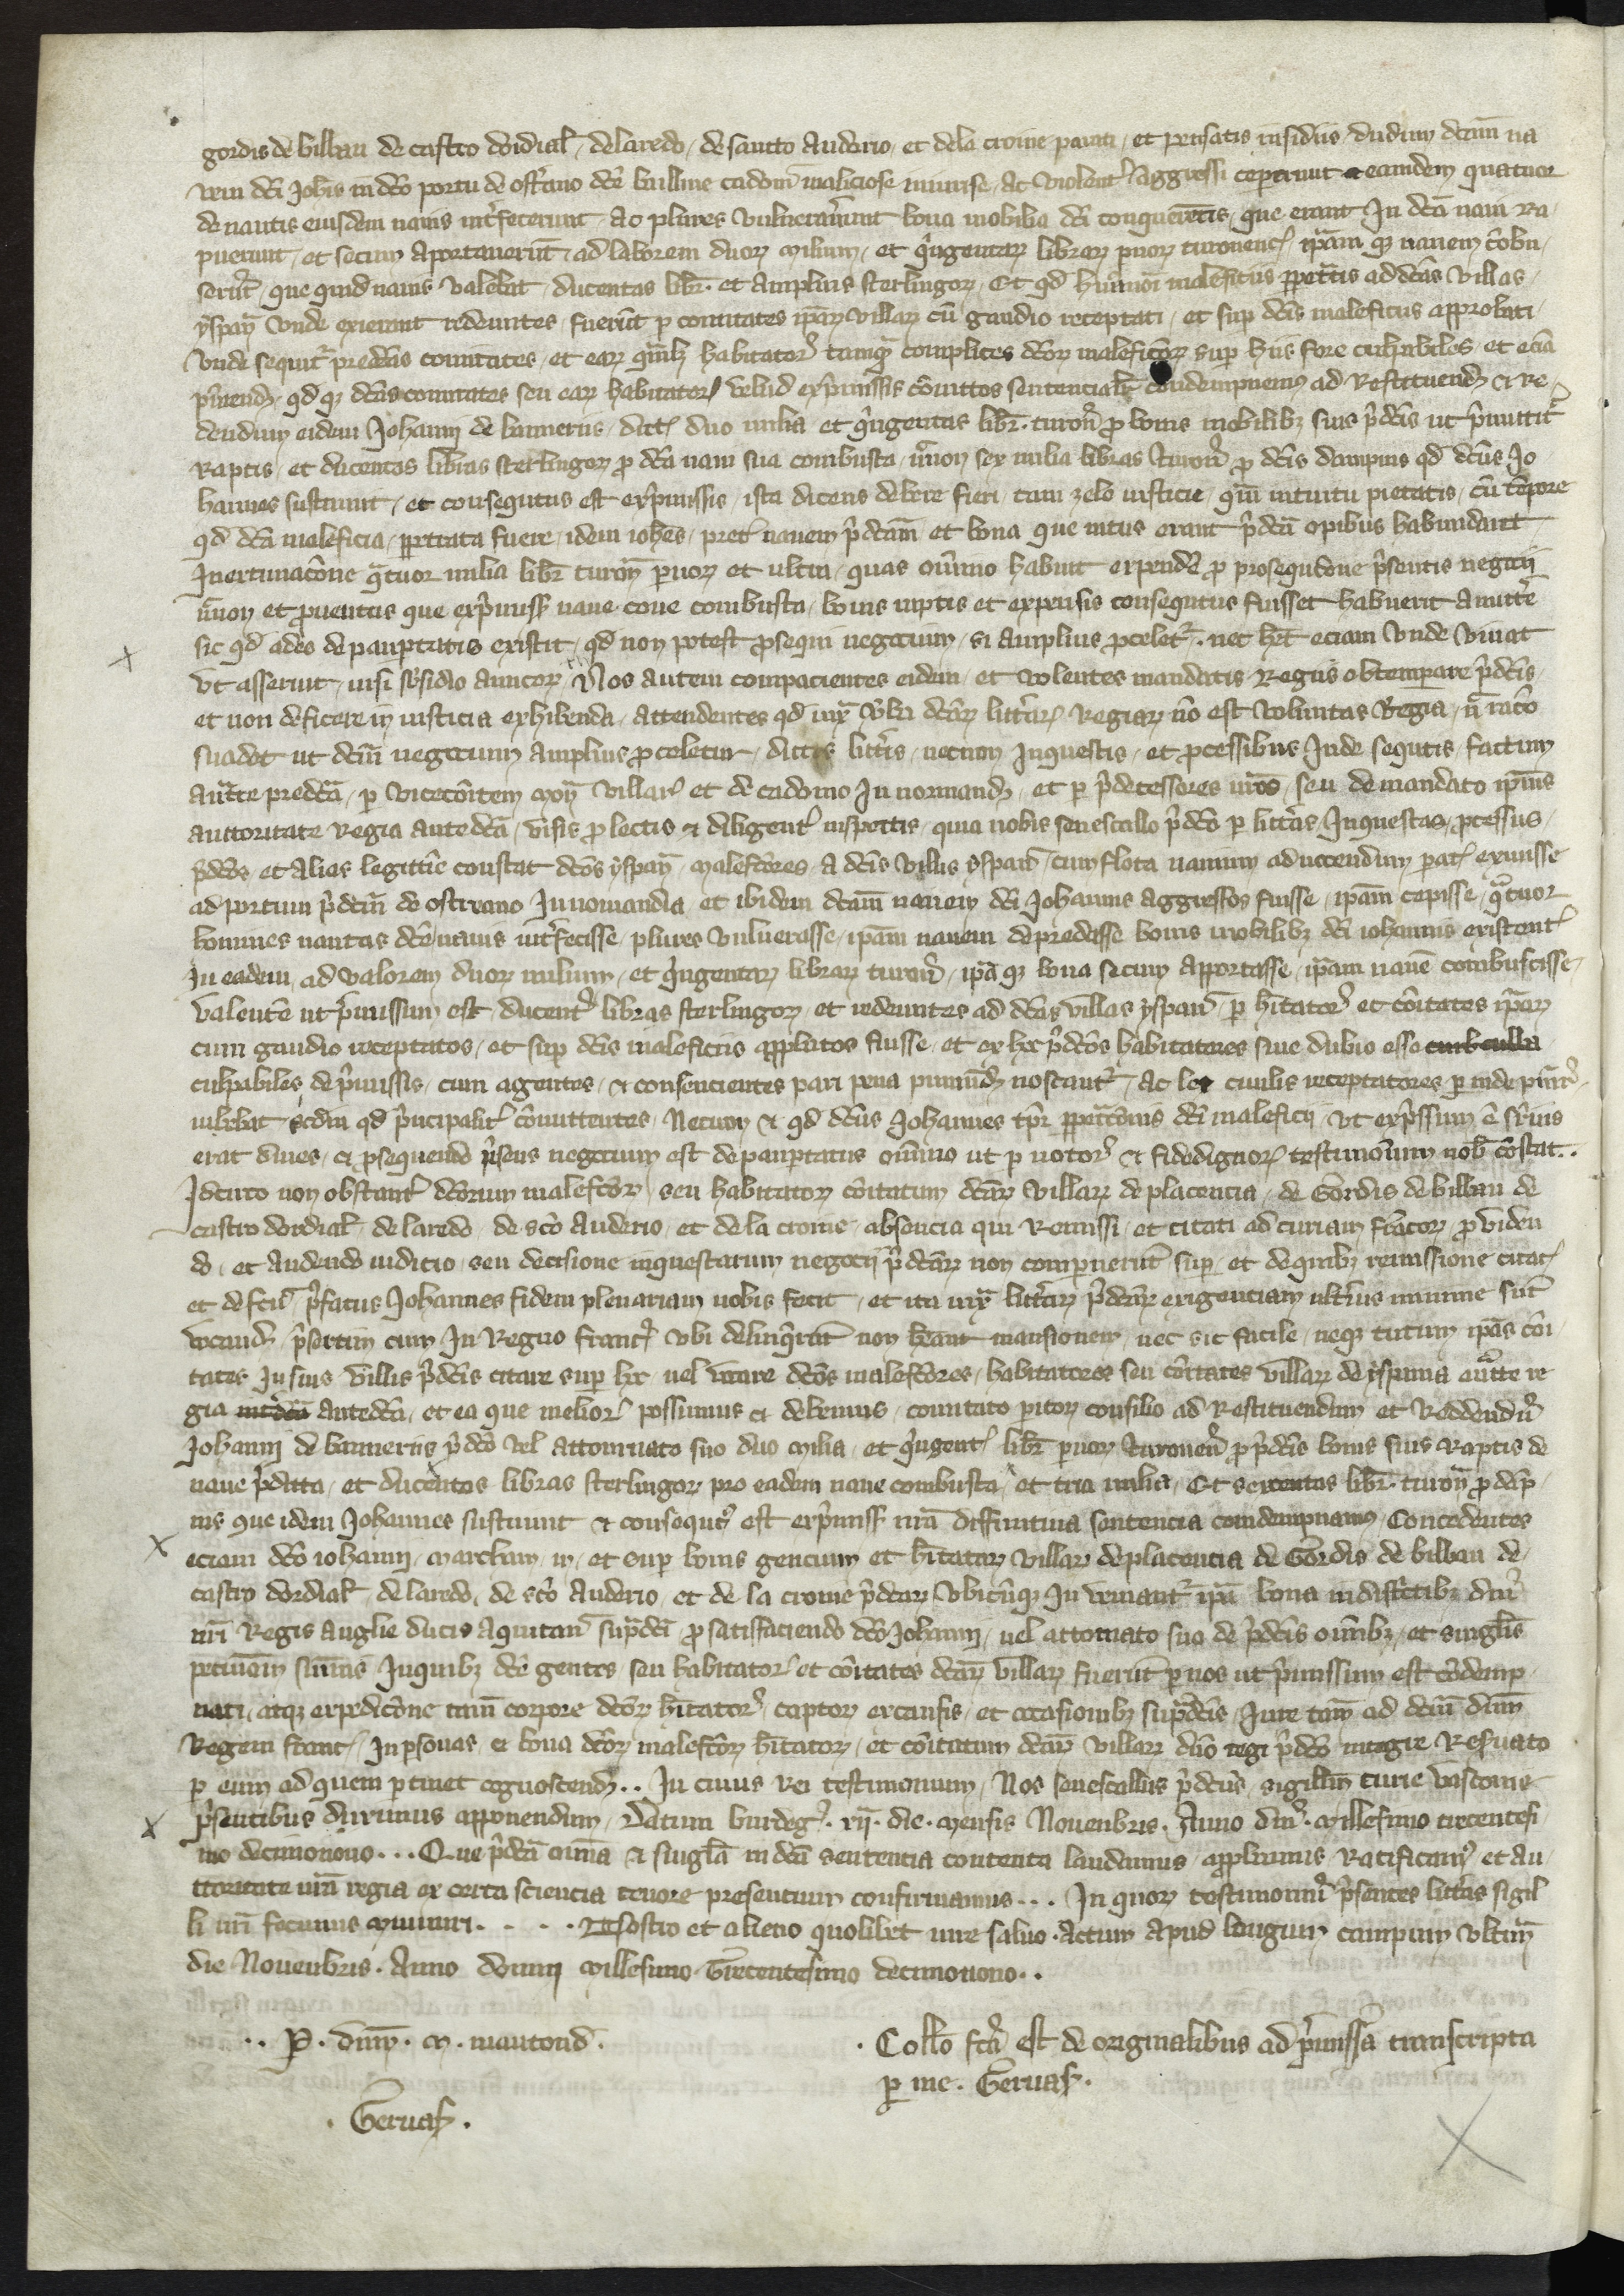 gordis de bilbau de castro dordial' de laredo de sancto Anderio et de la croine parati et pensatis insidiis dudum dcam na
vem dci Joh'is in dco portu de ostrano dce baillive cadom' maliciose iniuriose ac violent' aggressi ceperunt eamdem quatuor
de nautis eiusdem navis int'fecerunt ac plures vulnerav'unt bona mobilia dci conquerentis que erant in dca navi ra
puerunt et secum aportaverut ad valorem duor milium et q'ngentar librar parvor turonenc' ip'amq3 navem cobu
serut que quid' navis valebat ducentas libr. et amplius sterlingor Et qd hui'moi maleficiis ppetratis ad dcas villas
yspan' unde exierant redeuntes fuerut p comitates ip'ar villar cu gaudio receptati et sup dcis maleficiis approbati
unde sequit' predcas comitates et ear qualib3 habitator' tamq' complices dcor malefcor sup hiis fore culpabiles et ecia
p'niend' qd q3 dcas comitates seu ear habitator' velud ex p'missis convictos sentencialit' condempnemus ad restituend' et re
dendum eidem Johanni de banneriis dict' duo milia et q'ngentas libr. turon' pro bonis mobilib3 suis p'dcis ut p'mittit'
raptis et ducentas libras sterlingor p dca navi sua combusta n'non sex milia libras turon' p dcis dampnis qd dcus Jo
hannes sustinuit et consequtus est ex p'missis ista dicens debere fieri tam zelo iusticie qm intuitu pietatis cu tempore
qd dca maleficia ppetrata fuere idem Johes pret' navem p'dcam et bona que intus erant p'dcu opibus habundavit
in extimacone q'tuor milia libr turon' parvor et ultra quas omino habuit expende p prosequcione p'sentis negocii
n'non et proventus que ex p'miss' nave combusta bonis raptis et expensis consequtus fuisset habuerit amittere
sic qd adeo depaup'tatus existit qd non potest prosequi negocium si amplius pcelet'. nec h't eciam unde vivat
ut asserunt nisi s'bsidio amicor Nos autem compacientes eidem et volentes mandatis regiis obtemperare p'dcis
et non deficere in iusticia exhibenda attendentes qd iux' v'ba dcar litt'ar regiar no est voluntas regia n' raco
suadet ut dcm negocium amplius pceletur dictis litt'is necnon inquestis et pcessibus inde sequtis factum
auct'te predca p vicecomitem mon' villar' et de cadomo in normand' et p p'decessores n'ros seu de mandato ip'ius
auctoritate regia antedca visis p lectis et diligent' inspectis quia nobis senescallo p'dco p litt'as inquestas pcessus
p'dcos et alias legittie constat dcos yspan' malefcores a dcis villis yspan' cum flota navium ad nocendum parat' exivisse
ad portum p'dcm de ostrano in normandia et ibidem dcam navem dci Johannis aggressos fuisse ip'am cepisse q'tuor
homines nautas dce navis int'fecisse plures vulnerasse ip'am navem depredasse bonis mobilib3 dci Johannis existent'
in eadem ad valorem duor milium et q'ngentar librar turon' ip'aq3 bona secum apportasse ip'am navem combuscisse
valente ut p'missum est ducent' libras sterlingor et redeuntes ad dcas villas yspan' p h'itator' et coitates ip'ar
cum gaudio receptatos et sup dcis maleficiis approbatos fuisse et ex hoc p'dcos habitatores sine dubio esse
culpabiles de p'missis cum agentes et consencientes pari pena puniend' noscant' ac lex civilis receptatores perinde punir'
iubebat scdm qd p'ncipalit' comittentes Necnon et qd dcus Johannes tpr' ppetracionis dci maleficii ut exp'ssum e sup'ius
erat dives et prosequendo p'sens negocium est depauptatus omino ut p notor' et fidedignor testimonium nob constat..
Idcirco non obstant' dcorum malefcor seu habitator coitatum dcar villar de placencia de Gordis de bilbau de
castro dordial' de laredo de sco Anderio et de la croine absencia qui remissi et citati ad curiam francor p viden
do et audiendo iudicio seu decisione inquestarum negocii p'dcar non comparuerut sup et de quib3 remissione citac'
et defcu p'fatus Johannes fidem plenariam nobis fecit et ita iux' litt'ar p'dcar exigenciam ult'ius minime sut
vocand' p'sertim cum in regno franc' ubi delinq'rut non h'eant mansionem nec sit facile neq3 tutum ip'as coi
tates in suis villis p'dcis citare sup hoc nel vocare dcos malefcores habitatores seu coitates villar de yspania auct'te re
gia antedca et ea que melior' possumus et debemus comitato peritor consilio ad restituendum et reddendu
Johanni de banneriis p'dco vel attornato suo duo milia et q'ngent' libr parvor turonen' p p'dcis bonis suis raptis de
nave p'dicta et ducentas libras sterlingor pro eadem nave combusta et tria milia et sexcentas libr. turon' p damp
nis que idem Johannes sustinuit et consequt' est ex p'miss' nra diffinitiva sentencia condempnamus Concedentes
eciam dco Johanni marcham in et sup bonis gencium et h'itator villar de placencia de Gordis de bilbau de
castro dordial' de laredo de sco Anderio et de la croine p'dcar ubicumq3 inveniant' ip'a bona in districtib3 dni
nri Regis anglie ducis aquitan' sup'dci p satisfaciendo dco Johanni vel attornato suo de p'dcis omib3 et singlis
pecuniar' summis in quib3 dce gentes seu habitator' et coitates dcar villar fuerut p nos ut p'missum est condemp
nati atq3 expedicone tam corpore dcor h'itator' captor ex causis et occasionib3 sup'dcis iure tam ad dcm dnm
Regem franc' in psonas et bona dcor malefcor h'itator et coitatum dcar villar dno regi p'dco integre res'vato
p eum ad quem ptinet cognoscend'.. In cuius rei testimonium Nos senescallus p'dcus sigillum curie vasconie
p'sentibus duximus apponendum Datum burdeg'. xij. die. mensis Novenbris. Anno dni. millesimo trecentesi
mo decimonono... Que p'dca omia et singla in dca sentencia contenta laudamus approbamus ratificam' et au
ctoritate nra regia ex certa sciencia tenore presentium confirmamus... In quor testimonium p'sentes litt'as sigil
li nri fecimus muniri. . . . . Nostro et alieno quolibet iure salvo. Actum apud longum campum ultim'
die Novenbris. Anno domini millesimo Trecentesimo decimonono..
.. P. dnm. m. mautond.
. Collo fca est de originalibus ad p'missa transcripta
p me. Gervas'.
. Gervas'.